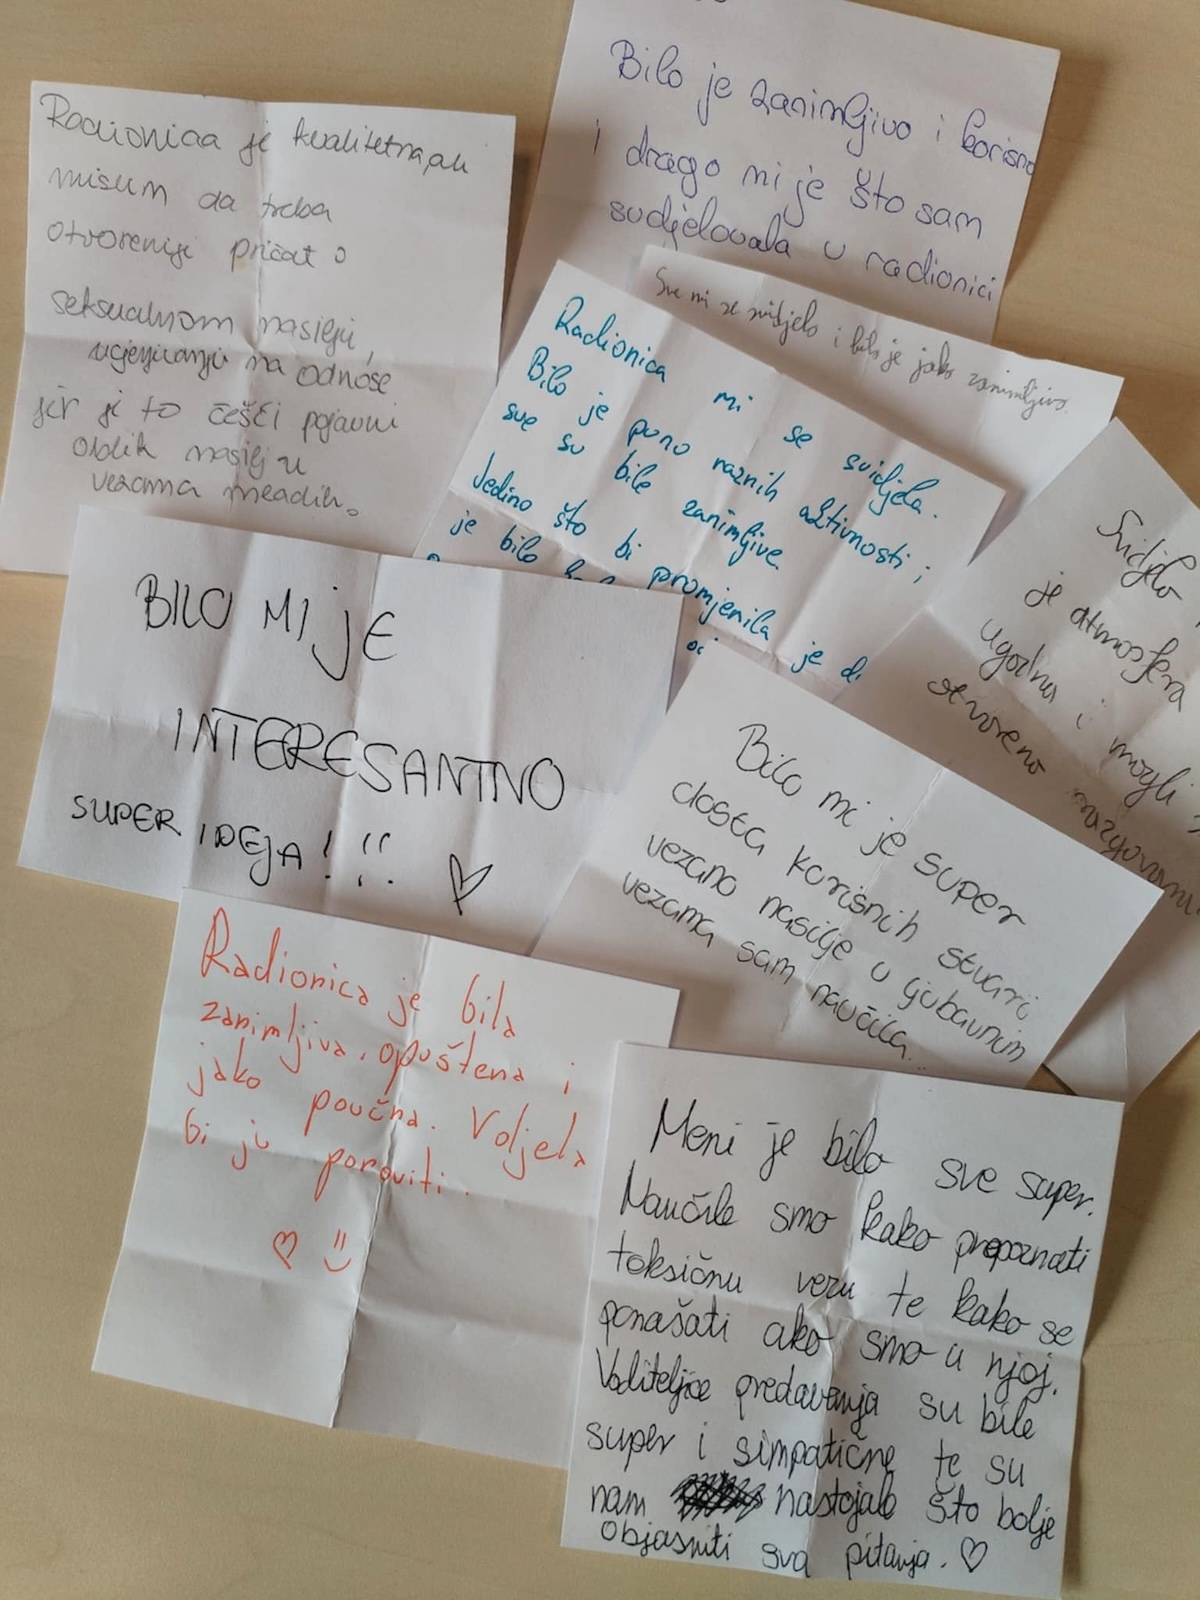 Bilo je zanimljivo i korisno
i drago mi je što sam
sudjelovala u radionici
Radionica je kvalitetna, ali
mislim da treba
otvorenije pričat o
seksualnom nasilju,
ucjenjivanju na odnose
jer je to češći pojavni
oblik nasilja u
vezama mladih.
Sve mi se svidjelo i bilo je jako zanimljivo.
Radionica mi se svidjela.
Bilo je puno raznih aktivnosti i
sve su bile zanimljive.
Jedino što bi promjenila je da
je bilo
Svidjelo
je atmosfera
ugodna i mogli
otvoreno
razgovarati
BILO MI JE
INTERESANTNO
SUPER IDEJA!!!
Bilo mi je super
dosta korisnih stvari
vezano nasilje u ljubavnim
vezama sam naučila.
Radionica je bila
zanimljiva, opuštena i
jako poučna. Voljela
bi ju ponoviti.
Meni je bilo sve super.
Naučile smo kako prepoznati
toksičnu vezu te kako se
ponašati ako smo u njoj.
Voditeljice predavanja su bile
super i simpatične te su
nam nastojale što bolje
objasniti sva pitanja.